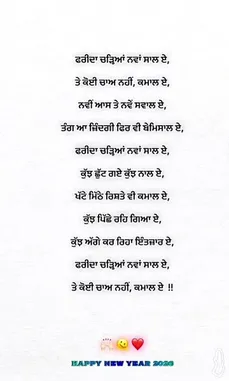 ਫਰੀਦਾ ਚੜ੍ਹਿਆਂ ਨਵਾਂ ਸਾਲ ਏ,
ਤੇ ਕੋਈ ਚਾਅ ਨਹੀਂ, ਕਮਾਲ ਏ,
ਨਵੀਂ ਆਸ ਤੇ ਨਵੇਂ ਸਵਾਲ ਏ,
ਤੰਗ ਆ ਜ਼ਿੰਦਗੀ ਫਿਰ ਵੀ ਬੇਮਿਸਾਲ ਏ,
ਫਰੀਦਾ ਚੜ੍ਹਿਆਂ ਨਵਾਂ ਸਾਲ ਏ,
ਕੁੱਝ ਛੁੱਟ ਗਏ ਕੁੱਝ ਨਾਲ ਏ,
ਖੱਟੇ ਮਿੱਠੇ ਰਿਸ਼ਤੇ ਵੀ ਕਮਾਲ ਏ,
ਕੁੱਝ ਪਿੱਛੇ ਰਹਿ ਗਿਆ ਏ,
ਕੁੱਝ ਅੱਗੇ ਕਰ ਰਿਹਾ ਇੰਤਜ਼ਾਰ ਏ,
ਫਰੀਦਾ ਚੜ੍ਹਿਆਂ ਨਵਾਂ ਸਾਲ ਏ,
ਤੇ ਕੋਈ ਚਾਅ ਨਹੀਂ, ਕਮਾਲ ਏ !!
HAPPY NEW YEAR 2020